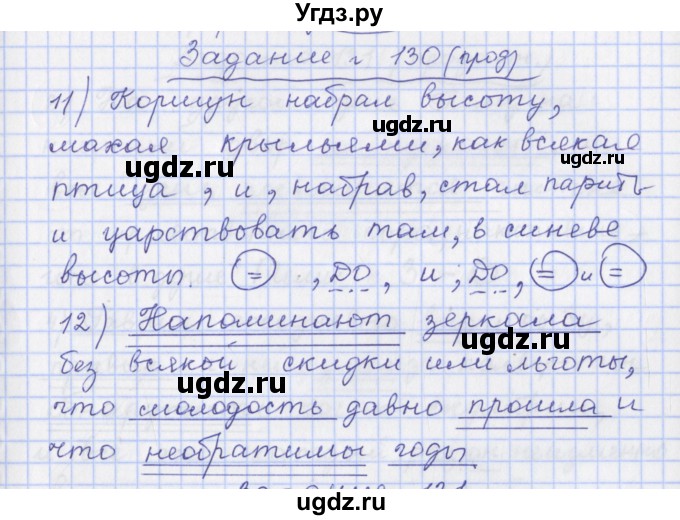 Угдз.ру
Задание г 130 (прод)
11) Коршун набрал высоту,
махая крыльями, как всякая
ugdz.ru ugdz.ru
птица, и, набрав, стал парить
и царствовать там, в синеве
ugdz.ru ugdz.ru
высоты. (=) , ДО, и , ДО, (=) и (=)
12) Напоминают зеркала
без всякой скидки или льготы,
ugdz.ru ugdz.ru
что молодость давно прошла и
что необратимы годы
ugdz.ru ugdz.ru